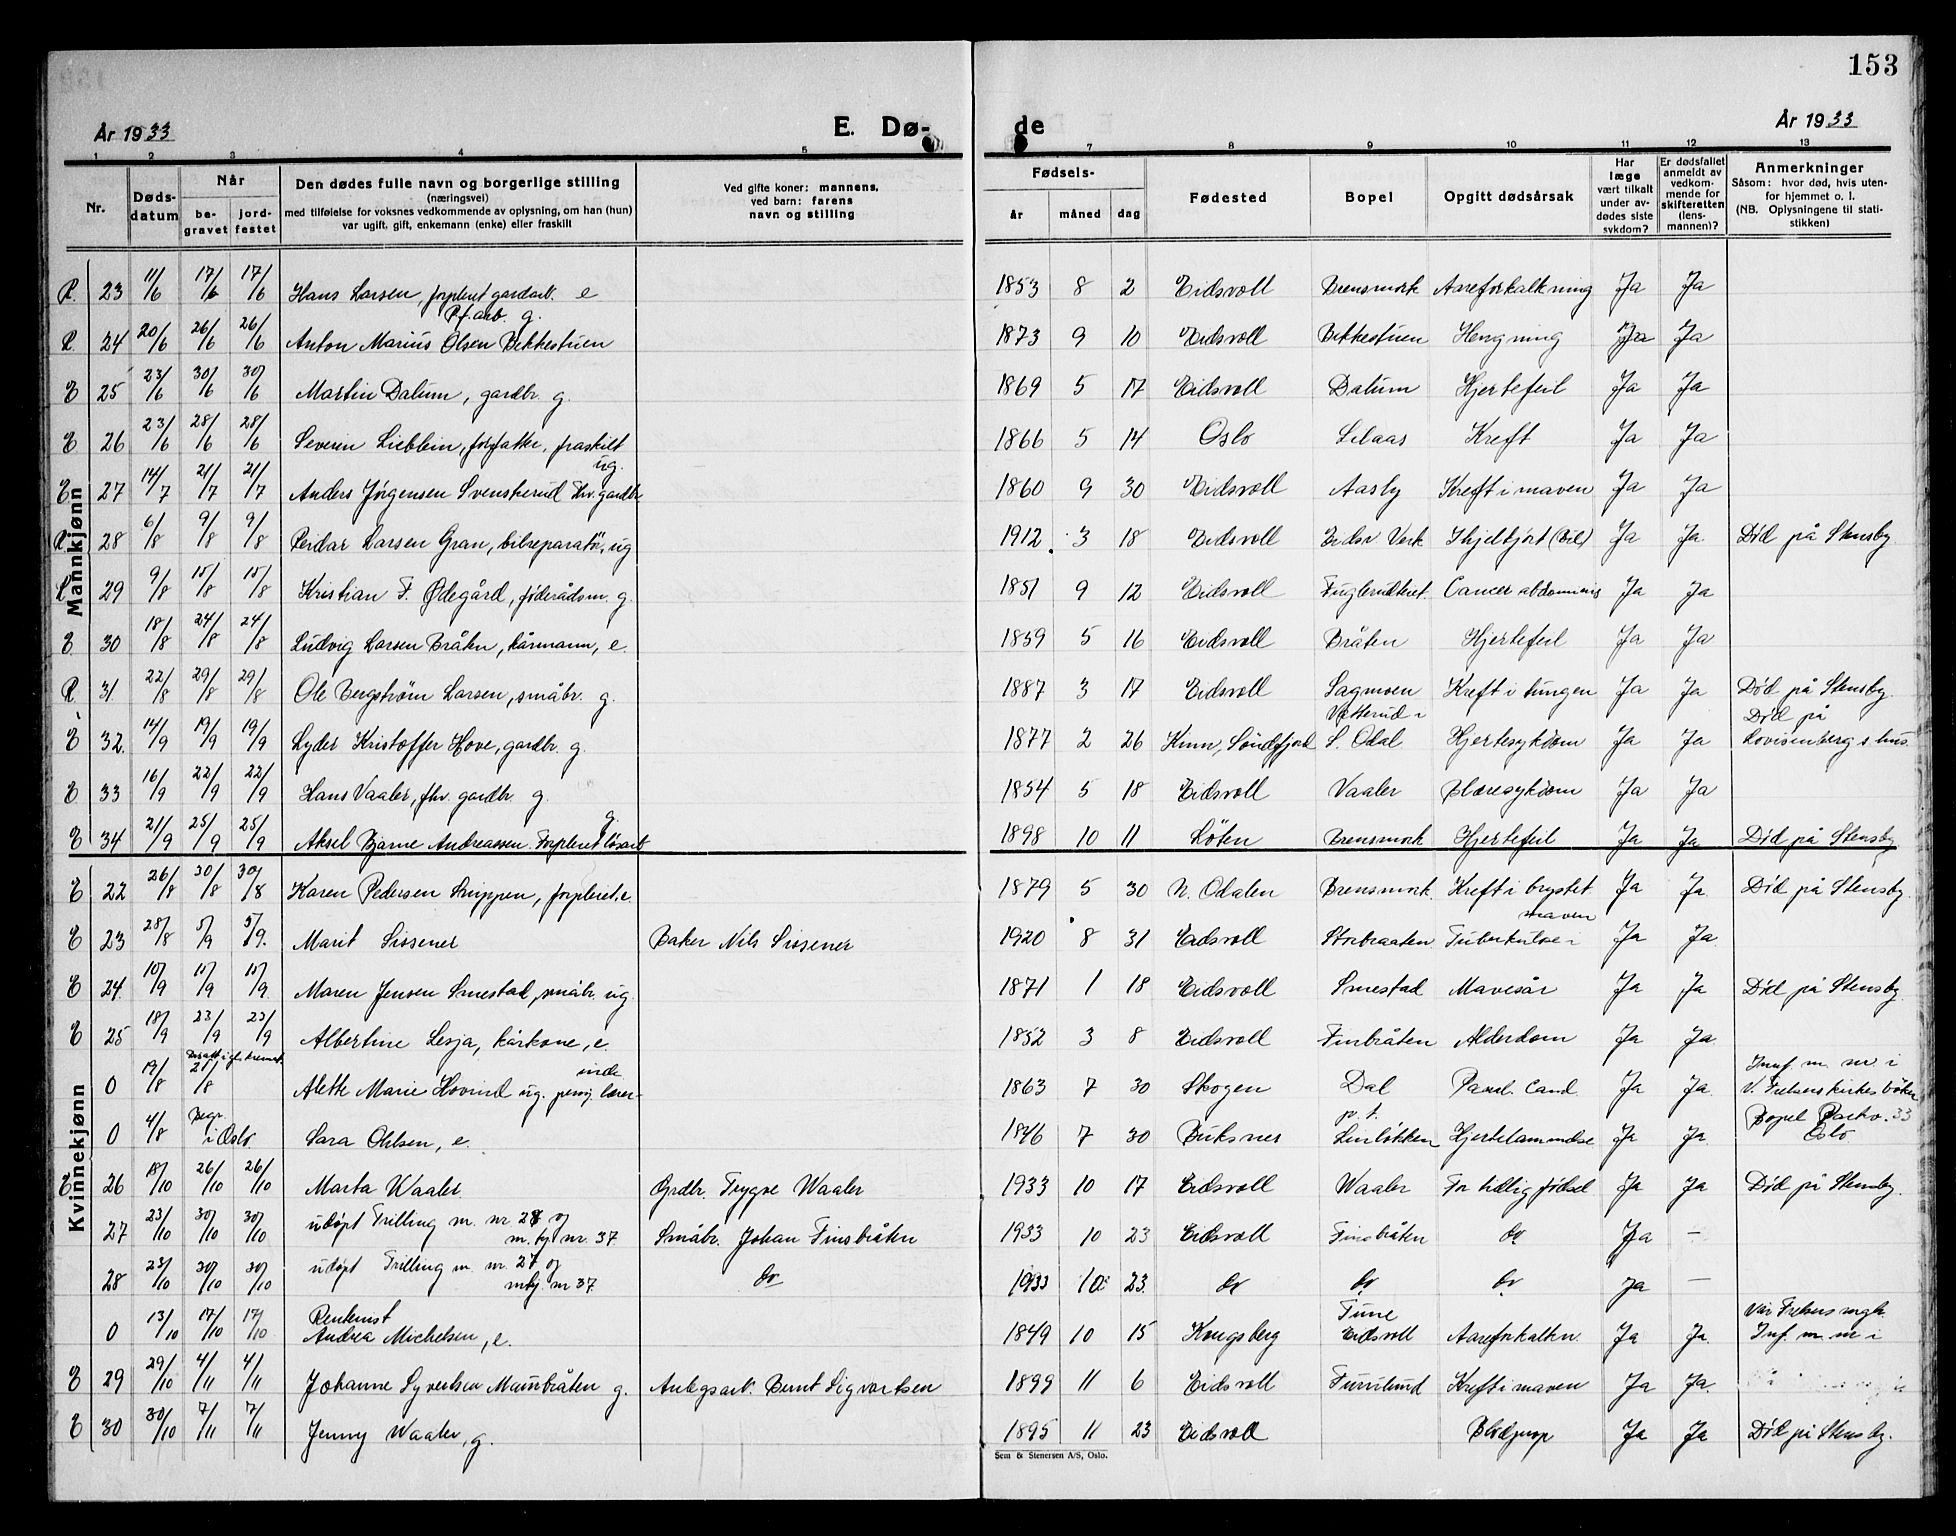 153
År 1933
E. Dø-
de
År 1933
1 2 3 4 5 7 8 9 10 11 12 13
Nr.
Døds-
datum
Når
be-
gravet
jord-
festet
Den dødes fulle navn og borgerlige stilling
(næringsvei)
med tilføielse for voksnes vedkommende av oplysning, om han (hun)
var ugift, gift, enkemann (enke) eller fraskilt
Ved gifte koner: mannens,
ved barn: farens
navn og stilling
Fødsels-
år måned dag
Fødested
Bopel
Opgitt dødsårsak
Har
læge
vært tilkalt
under av-
dødes siste
sykdom?
Er dødsfallet
anmeldt av
vedkom-
mende for
skifteretten
(lens-
mannen)?
Anmerkninger
Såsom: hvor død, hvis uten-
for hjemmet o. l.
(NB. Oplysningene til stati-
stikken)
Mannkjønn
R. 23 11/6 17/6 17/6 Hans Larsen, forpleiet gardarb. e 1853 8 2 Eidsvoll Brensmork Aareforkalkning Ja Ja
R. 24 20/6 26/6 26/6 Anton Marius Olsen Bekkestuen g. 1873 9 10 Eidsvoll Bekkestuen Hengning Ja Ja
E 25 23/6 30/6 30/6 Martin Dalum, gardbr. g. 1869 5 17 Eidsvoll Dalum Hjertefeil Ja Ja
E 26 23/6 28/6 28/6 Severin Lieblein, forfatter, fraskilt 1866 5 14 Oslo Kreft Ja Ja
E 27 14/7 21/7 21/7 Anders Jørgensen Svenskerud fhv. gardbr ug. 1860 9 30 Eidsvoll Aasby Kreft i maven Ja Ja
R 28 6/8 9/8 9/8 Peidar Larsen Gran, bilreparatør, ug 1912 3 18 Eidsvoll Eidsv Verk Ihjelkjørt (Bil) Ja Ja Død på Stensby
R 29 9/8 15/8 15/8 Kristian F. Ødegård, føderådsm. g. 1851 9 12 Eidsvoll Cancer abdominis Ja Ja
E 30 18/8 24/8 24/8 Ludvig Larsen Bråten, kårmann, e. 1859 5 16 Eidsvoll Bråten Hjertefeil Ja Ja
R. 31. 22/8 29/8 29/8 Ole Bergstrøm Larsen, småbr. g. 1887 3 17 Eidsvoll Sagmoen Kreft i tungen Ja Ja Død på Stensby.
E 32. 14/9 19/9 19/9 Lyder Kristoffer Hove, gardbr. g. 1877 2 26 Kinn, Søndfjord Vetterud i S. Odal Hjertesykdom Ja Ja Død på Lovisenberg s hus.
E 33 16/9 22/9 22/9 Hans Vaaler, fhv. gardbr. g. 1854 5 18 Eidsvoll Vaaler Blæresykdom Ja Ja
E 34 21/9 25/9 25/9 Aksel Bjarne Andreassen. Forpleiet løsarb g. 1898 10 11 Løten Brensmork Hjertefeil Ja Ja Død på Stensby
Kvinnekjønn
E 22 26/8 30/8 30/8 Karen Pedersen Snippen, forpleiet. e. 1879 5 30 N. Odalen Brensmork. Kreft i brystet Ja Ja Død på Stensby.
E 23 28/8 5/9 5/9. Marit Sissener Baker Nils Sissener 1920 8 31 Eidsvoll Storbraaten Tuberkulose i maven Ja Ja.
E 24. 10/9 15/9 15/9. Maren Jensen Smestad, småbr. ug. 1871 1 18 Eidsvoll Smestad Mavesår Ja Ja Død på Stensby
E 25 18/9 23/9 23/9 Albertine Lesja, kårkone, e. 1852 3 8 Eidsvoll Finbråten Alderdom Ja Ja
0 19/8 21/8 Alette Marie Hovind ug. pensj. lærerinde 1863 7 30 Skogen Dal Ja Ja. Innf. m. nr. i V. Frelsers kirkes bøker
0 4/8 Begr. i Oslo Sara Ohlsen, e. 1846 7 30 Buksnes p. t. Linløkken Hjertelammelse Ja Ja. Bopel 33 Oslo
E 26 18/10 26/10 26/10 Marta Waaler. Grdbr. Trygve Waaler 1933 10 17 Eidsvoll Waaler For tidlig fødsel Ja Ja Død på Stensby.
27 23/10 30/10 30/10 udøpt Trilling m. nr. 28 og m. kj. nr. 37. Småbr. Johan Finsbråten 1933 10 23 Eidsvoll Finsbråten do Ja —
28 23/10 30/10 30/10 udøpt Trilling m. nr. 27 og mkj. nr 37. do 1933 10 23. do do do Ja —
0 13/10 17/10 17/10 Rentenist Andrea Michelsen, e. 1849 10 15 Kongsberg Tune Eidsvoll Aareforkalkn. Ja Ja. Vår Frelsers mgh. Inf. m. nr i
E 29 29/10 4/11 4/11 Johanne Syvertsen Maursbråten g. Anlegsarb. Bernt Sigvartsen 1899 11 6 Eidsvoll Furulund Kreft i maven Ja Ja.
E 30 30/10 7/11 7/11 Jenny Waaler, g. 1895 11 23 Eidsvoll Blodprop Ja Ja Død på Stensby.
Sem & Stenersen A/S, Oslo.